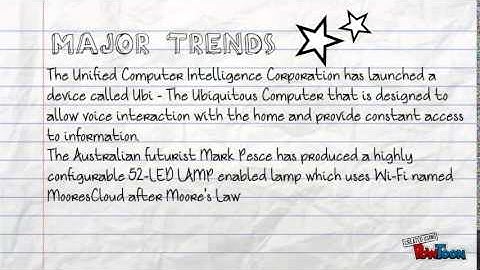 MAJOR TRENDS
The Unified Computer Intelligence Corporation has launched a
device called Ubi - The Ubiquitous Computer that is designed to
allow voice interaction with the home and provide constant access
to information.
The Australian futurist Mark Pesce has produced a highly
configurable 52-LED LAMP enabled lamp which uses Wi-Fi named
MooresCloud after Moore's Law
CREATED USING
POWTOON